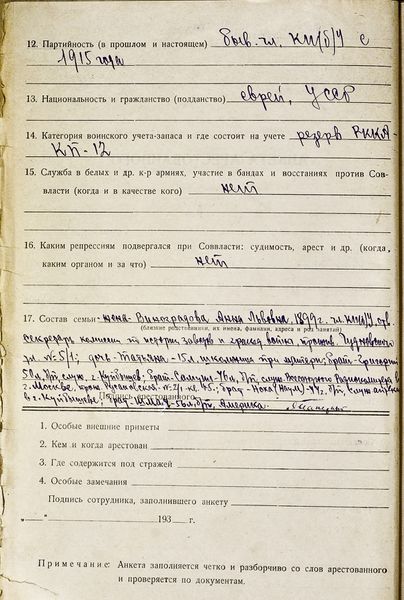 12. Партийность (в прошлом и настоящем) бывш. чл. КП(б)У с
1915 года
13. Национальность и гражданство (подданство) еврей, УССР
14. Категория воинского учета-запаса и где состоит на учете резерв РККА-
КП-12
15. Служба в белых и др. к-р армиях, участие в бандах и восстаниях против Сов-
власти (когда и в качестве кого) нет
16. Каким репрессиям подвергался при Соввласти: судимость, арест и др. (когда,
каким органом и за что) нет
17. Состав семьи жена-Виноградова Анна Львовна 1899 г. чл. КП(б)У,
(близкие родственники, их имена, фамилии, адреса и род занятий)
Секретарь комиссии по истории завода и гражд. войны, прожив.
ул. № 5/1; дочь-Татьяна-15 л. школьница при матери; Брат-Григорий
50 л, б/п, служ. г. Куйбышев; Брат-Самуил-46 л, б/п, служ.
г. Москве, № 21 кв. 45; брат-
в г. Куйбышеве, брат- 56 л. б/п, Америка.
Подпись арестованного
1. Особые внешние приметы
2. Кем и когда арестован
3. Где содержится под стражей
4. Особые замечания
Подпись сотрудника, заполнившего анкету
„ “ 193 г.
Примечание: Анкета заполняется четко и разборчиво со слов арестованного
и проверяется по документам.